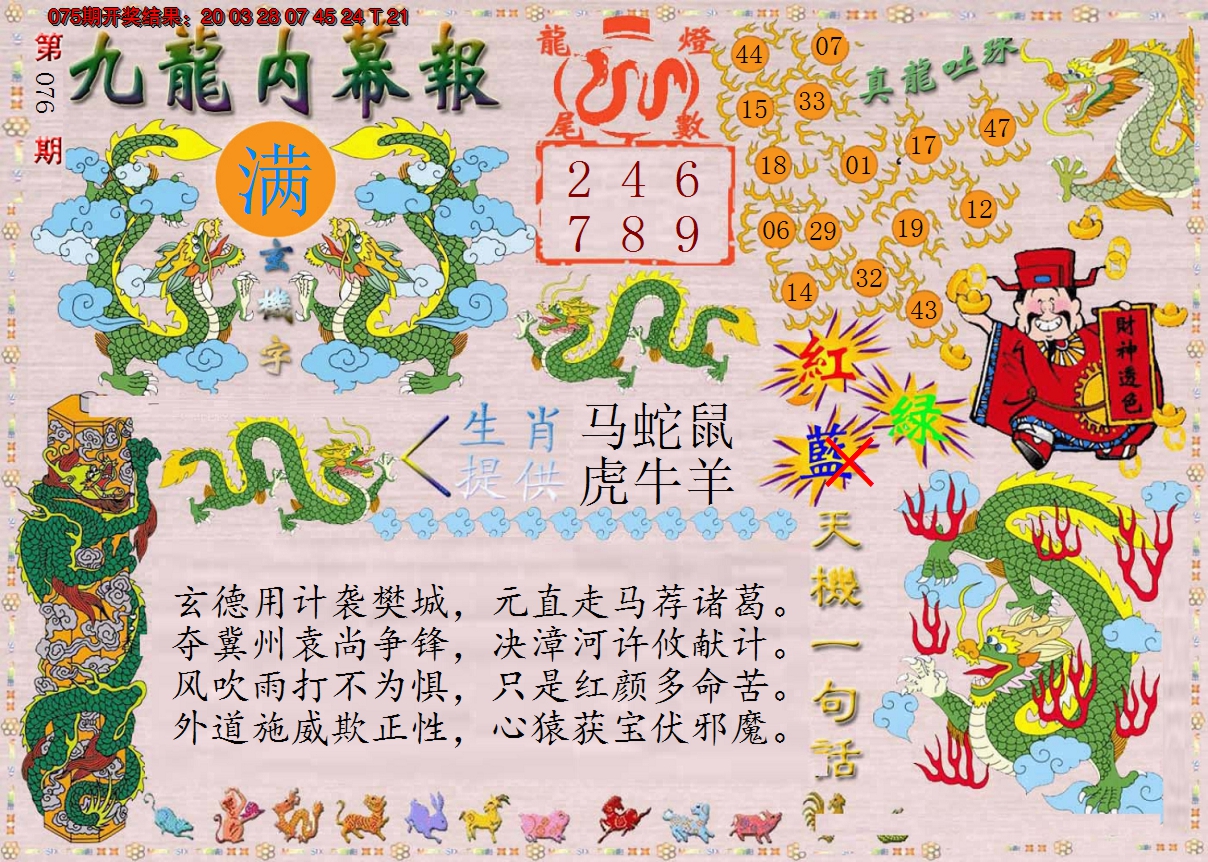 075期开奖结果：20 03 28 07 45 24 T 21
第 076 期
九龍内幕報
满
玄機字
龍燈
尾數
2 4 6
7 8 9
真龍吐珠
44 07
15 33
17 47
18 01
06 29 19 12
14 32 43
財神透色
紅
綠
藍
生肖 马蛇鼠
提供 虎牛羊
天機一句话
玄德用计袭樊城，元直走马荐诸葛。
夺冀州袁尚争锋，决漳河许攸献计。
风吹雨打不为惧，只是红颜多命苦。
外道施威欺正性，心猿获宝伏邪魔。